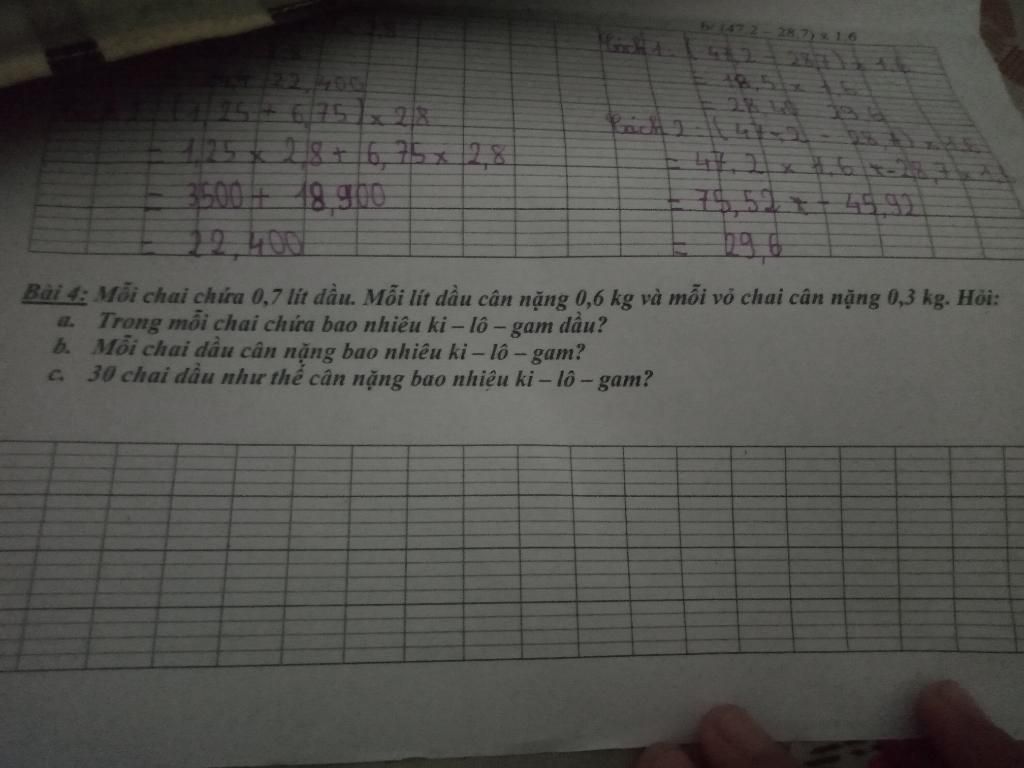 b/ (47,2 - 28,7) x 1,6
22,400
(1,25 + 6,75) x 2,8
= 1,25 x 2,8 + 6,75 x 2,8
= 3500 + 18,900
= 22,400
Cách 1:
= 18,5 x 1,6
29,6
Cách 2:
= 47,2 x 1,6 - 28,7 x
= 75,52 - 45,92
= 29,6
Bài 4: Mỗi chai chứa 0,7 lít dầu. Mỗi lít dầu cân nặng 0,6 kg và mỗi vỏ chai cân nặng 0,3 kg. Hỏi:
a. Trong mỗi chai chứa bao nhiêu ki – lô – gam dầu?
b. Mỗi chai dầu cân nặng bao nhiêu ki – lô – gam?
c. 30 chai dầu như thế cân nặng bao nhiệu ki – lô – gam?